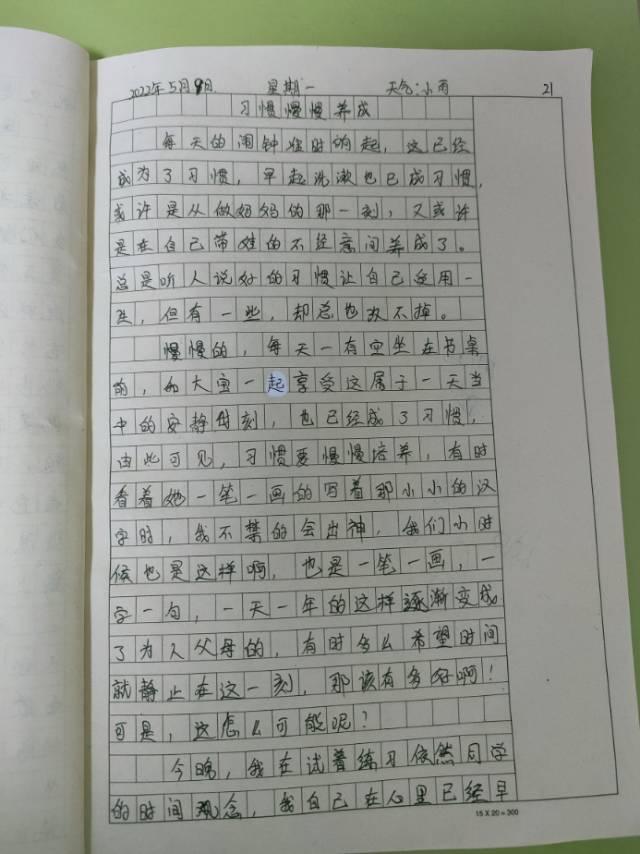 2022年5月9日 星期一 天气:小雨 21
习惯慢慢养成
每天的闹钟准时响起，这已经
成为了习惯，早起洗漱也已成习惯，
或许是从做妈妈的那一刻，又或许
是在自己带娃的不经意间养成了。
总是听人说好的习惯让自己受用一
生，但有一些，却总也改不掉。
慢慢的，每天一有空坐在书桌
的，和大宝一起享受这属于一天当
中的安静时刻，也已经成了习惯，
由此可见，习惯要慢慢培养，有时
看着她一笔一画的写着那小小的汉
字时，我不禁的会出神，我们小时
候也是这样啊，也是一笔一画，一
字一句，一天一年的这样逐渐变成
了为人父母的，有时多么希望时间
就静止在这一刻，那该有多好啊！
可是，这怎么可能呢？
今晚，我在试着练习依然同学
的时间观念，我自己在心里已经早
15 X 20 = 300